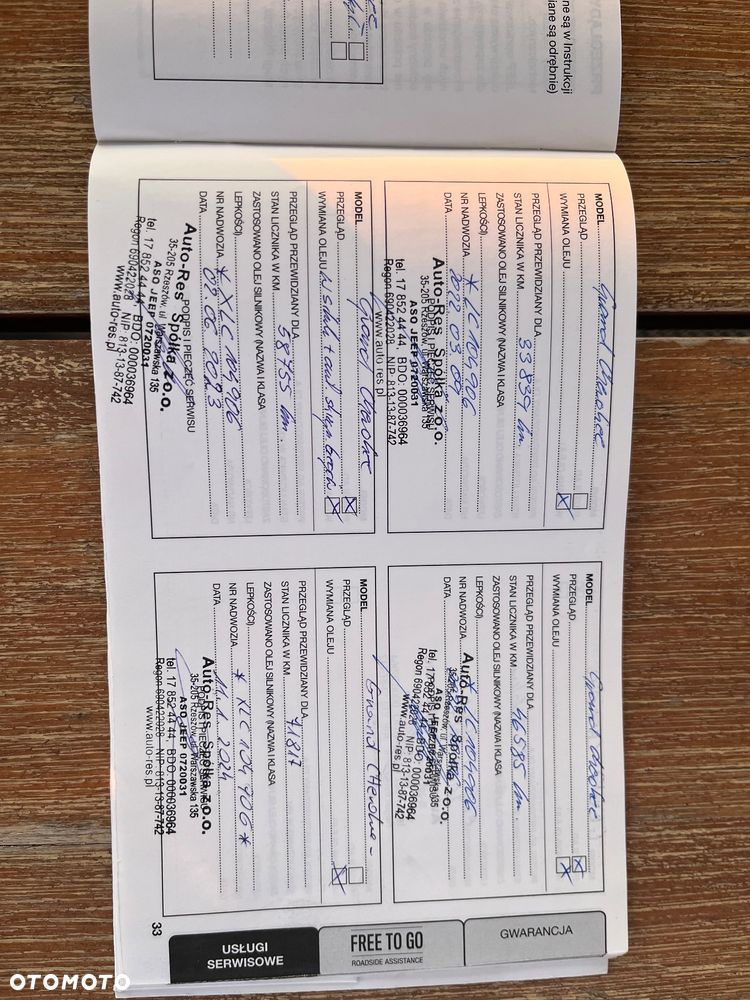 ne są w Instrukcji
iane są odrębnie)
MODEL Grand Cherokee
PRZEGLĄD
WYMIANA OLEJU
PRZEGLĄD PRZEWIDZIANY DLA
STAN LICZNIKA W KM 33 839 km.
ZASTOSOWANO OLEJ SILNIKOWY (NAZWA I KLASA
LEPKOŚCI)
NR NADWOZIA * LC 104906
DATA 2022 03
PODPIS I PIECZĘĆ SERWISU
Auto-Res Spółka z o.o.
35-205 Rzeszów, ul. Warszawska 135
ASO JEEP 0720031
tel. 17 852 44 44, BDO: 000036964
Regon 690422028 NIP 813-13-87-742
www.auto-res.pl
MODEL Grand Cherokee
PRZEGLĄD
WYMIANA OLEJU
PRZEGLĄD PRZEWIDZIANY DLA
STAN LICZNIKA W KM 46585 km.
ZASTOSOWANO OLEJ SILNIKOWY (NAZWA I KLASA
LEPKOŚCI)
NR NADWOZIA
DATA
Auto-Res Spółka z o.o.
35-205 Rzeszów, ul. Warszawska 135
ASO JEEP 0720031
tel. 17 852 44 44, BDO: 000036964
Regon 690422028 NIP 813-13-87-742
www.auto-res.pl
MODEL Grand Cherokee
PRZEGLĄD
WYMIANA OLEJU
PRZEGLĄD PRZEWIDZIANY DLA
STAN LICZNIKA W KM 58755 km.
ZASTOSOWANO OLEJ SILNIKOWY (NAZWA I KLASA
LEPKOŚCI)
NR NADWOZIA * XLC 104906
DATA 02.06 2023
PODPIS I PIECZĘĆ SERWISU
Auto-Res Spółka z o.o.
35-205 Rzeszów, ul. Warszawska 135
ASO JEEP 0720031
tel. 17 852 44 44, BDO: 000036964
Regon 690422028 NIP 813-13-87-742
www.auto-res.pl
MODEL Grand Cherokee
PRZEGLĄD
WYMIANA OLEJU
PRZEGLĄD PRZEWIDZIANY DLA
STAN LICZNIKA W KM 71817
ZASTOSOWANO OLEJ SILNIKOWY (NAZWA I KLASA
LEPKOŚCI)
NR NADWOZIA * XLC 104 906 *
DATA 2024
PODPIS I PIECZĘĆ SERWISU
Auto-Res Spółka z o.o.
35-205 Rzeszów, ul. Warszawska 135
ASO JEEP 0720031
tel. 17 852 44 44, BDO: 000036964
Regon 690422028 NIP 813-13-87-742
www.auto-res.pl
33
USŁUGI
SERWISOWE
FREE TO GO
ROADSIDE ASSISTANCE
GWARANCJA
OTOMOTO